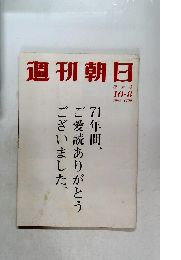 週刊朝日
10-8
71年間、
ご愛読ありがとう
ございました。